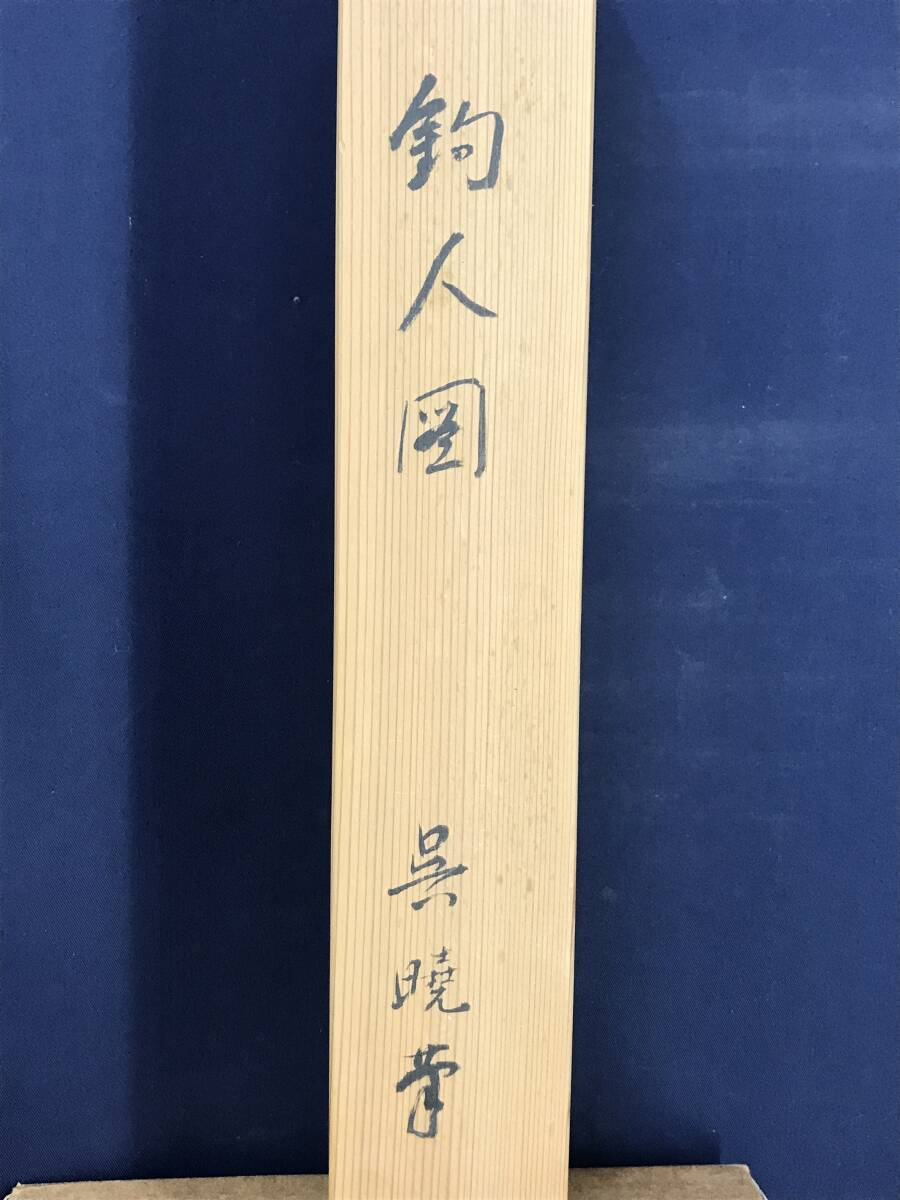 釣人圖
呉曉筆